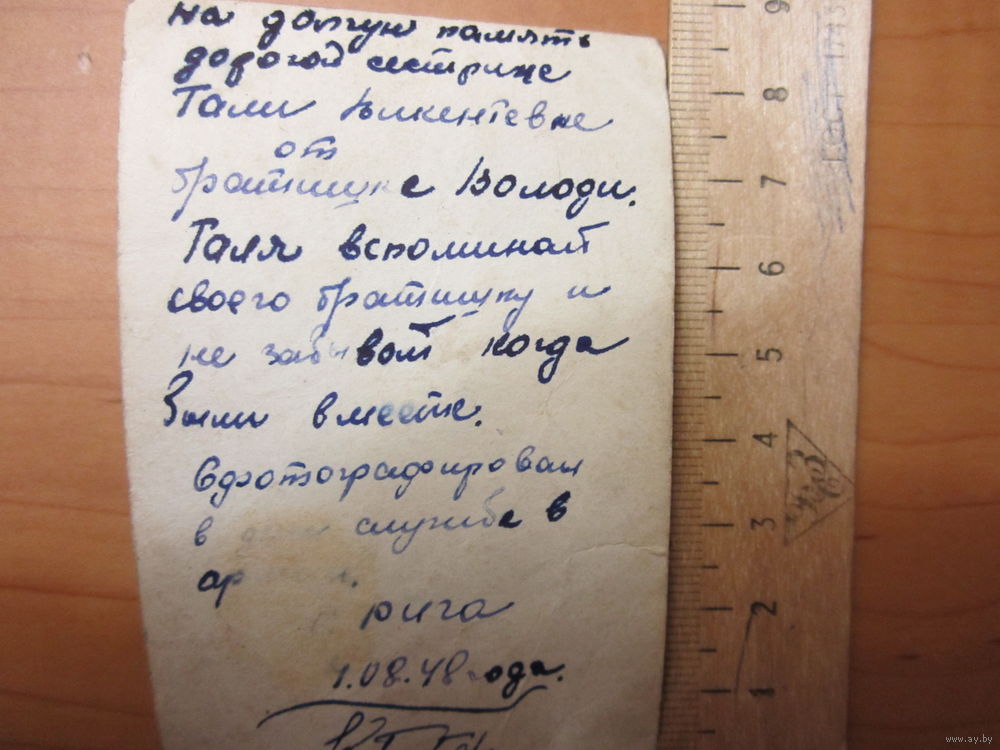 на долгую память
дорогой сестрице
Тали Викентевне
от
братишке Володи.
Таля вспоминай
своего братишку и
не забывай когда
были вместе.
Сфотографирован
в дни службе в
армии.
рига
1.08.48 года.
9
8
7
6
5
4
3
2
1
www.ay.by